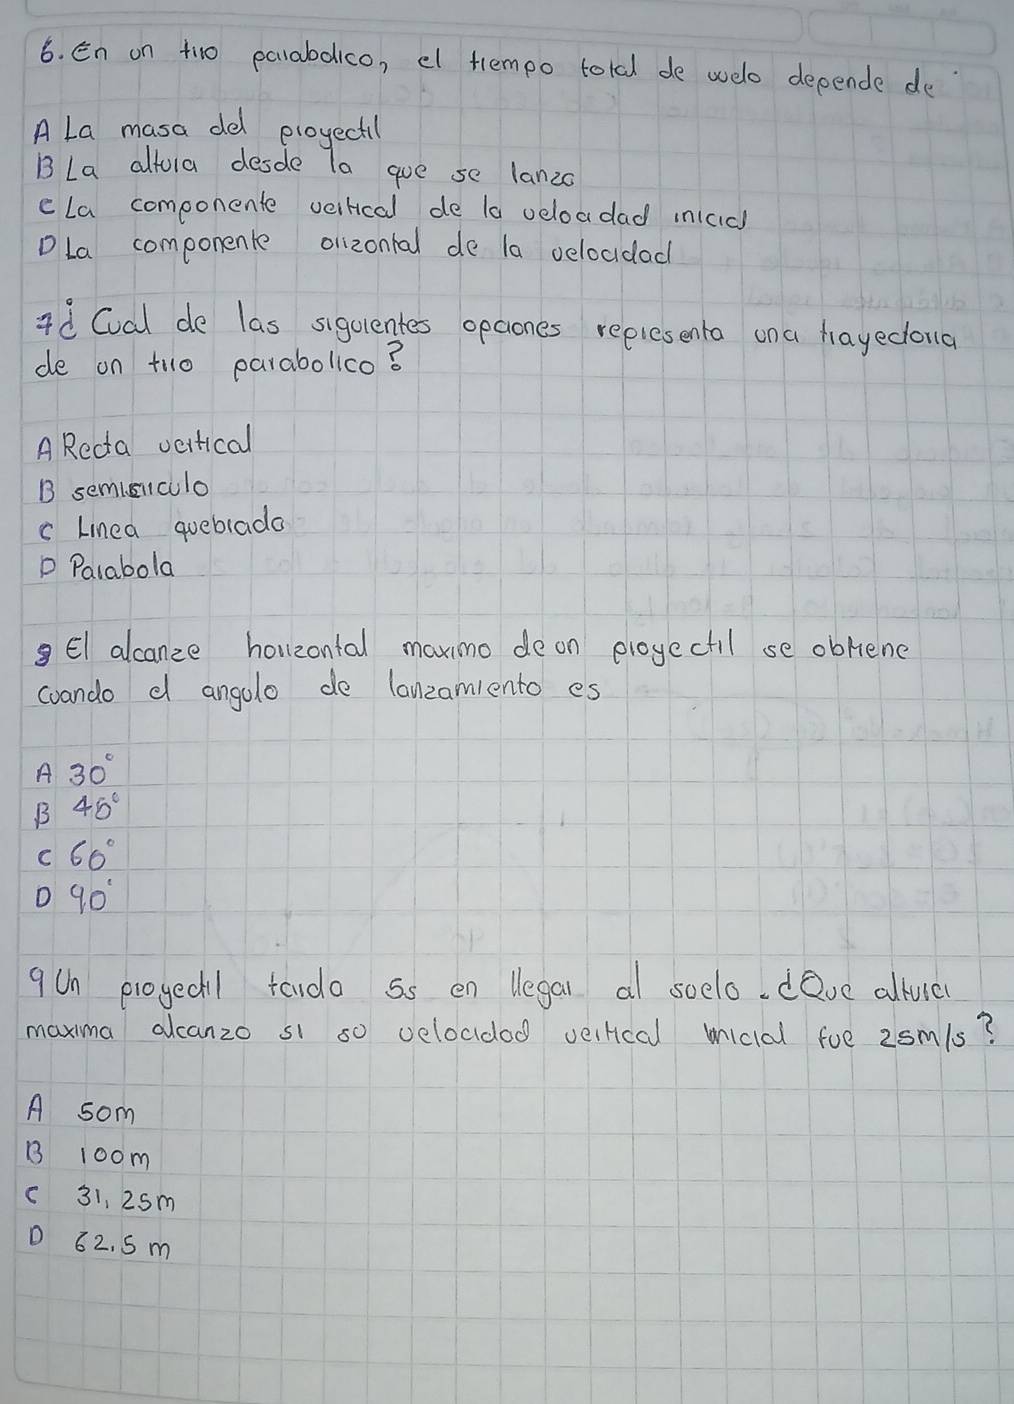 6. En un tiro parabolico, el tiempo total de vuelo depende de:
A La masa del proyectil
B La altura desde la que se lanza
c La componente vertical de la velocidad inicial
D La componente orizontal de la velocidad
7 ¿Cual de las siguientes opciones representa una trayectoria
de un tiro parabolico?
A Recta vertical
B semisirculo
c Linea quebrada
D Parabola
8 El alcanze horizontal maximo de un proyectil se obtiene
cuando el angulo de lanzamiento es
A 30°
B 45°
C 60°
D 90°
9 Un proyectil tarda 5s en llegar al suelo. ¿Que altura
maxima alcanzo si su velocidad vertical inicial fue 25m/s?
A 50m
B 100m
C 31,25m
D 62.5 m